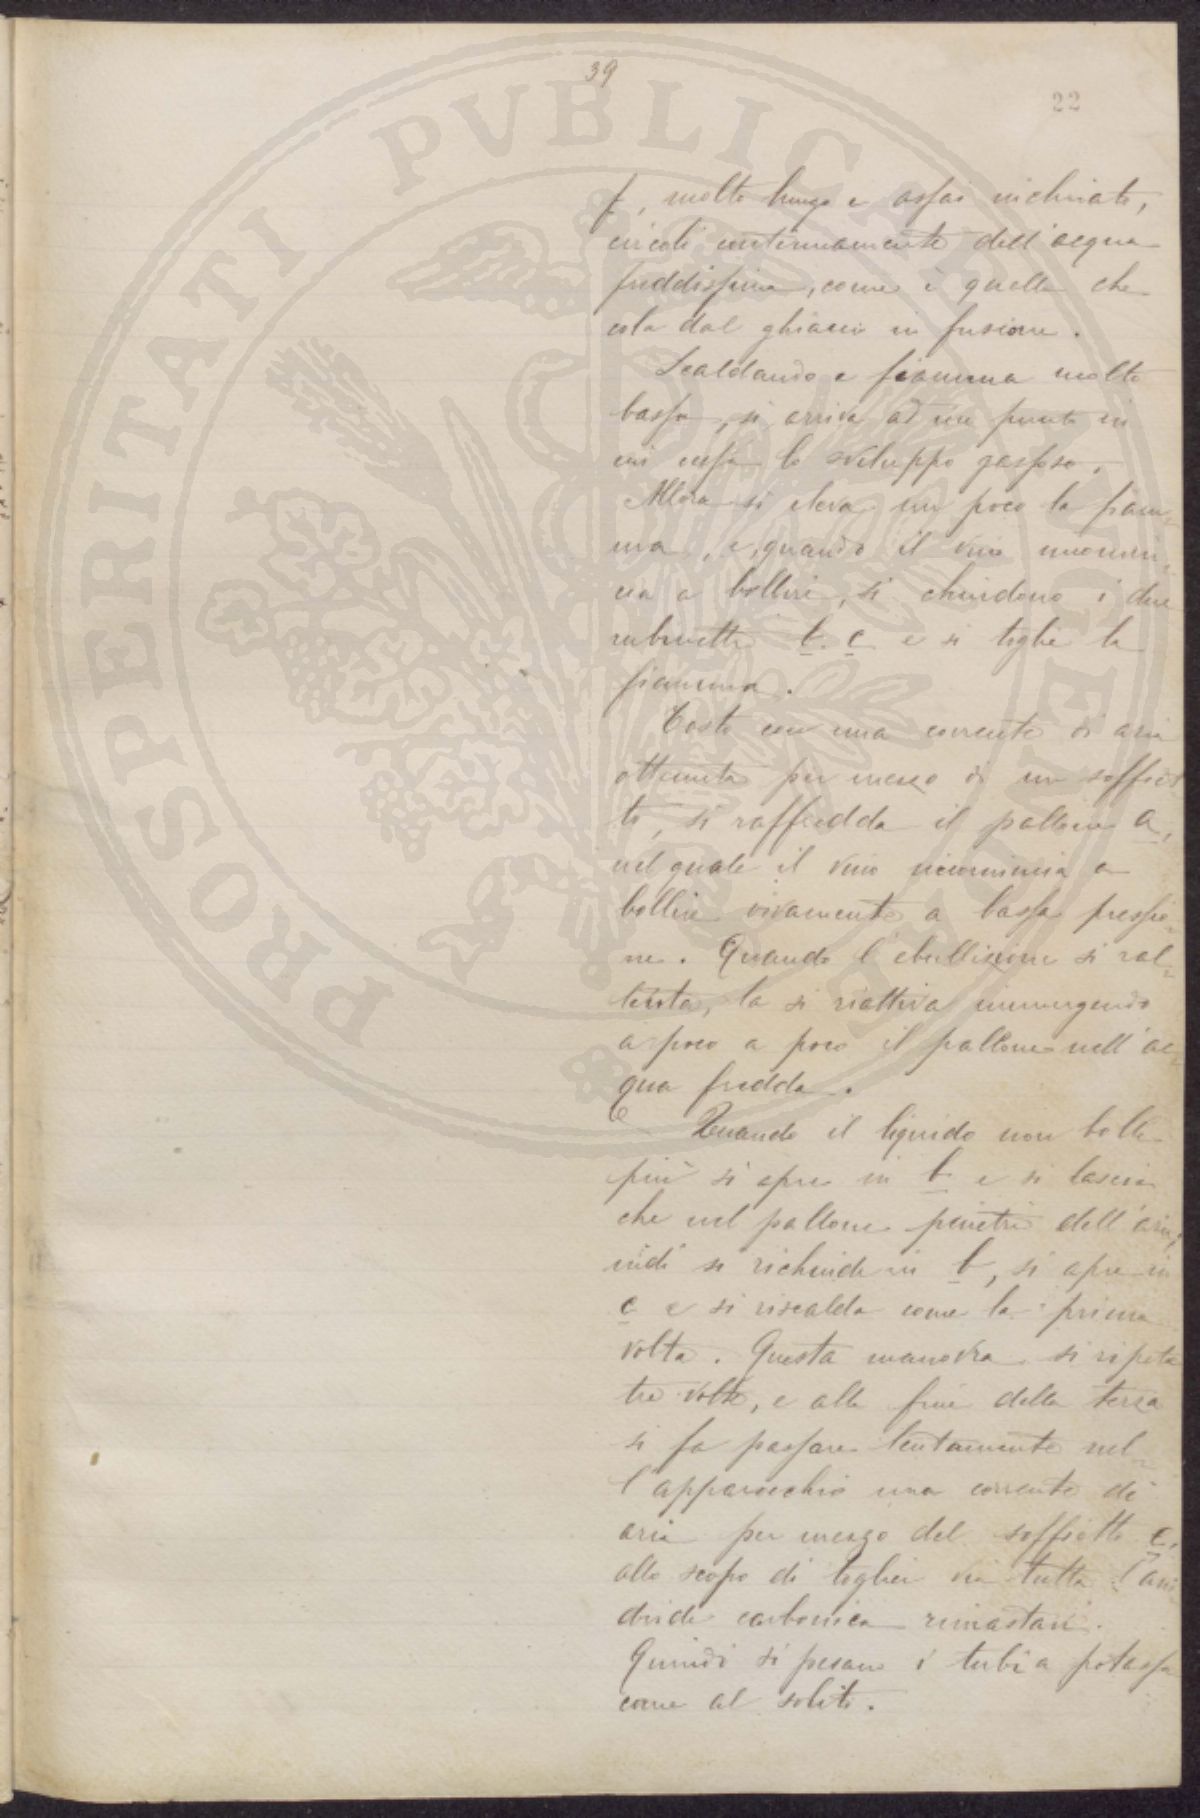 39
22
f, molto lungo e assai inclinato,
circoli continuamente dell'acqua
freddissima, come è quella che
cola dal ghiaccio in fusione.
Scaldando a fiamma molto
bassa, si arriva ad un punto in
cui cessa lo sviluppo gassoso.
Allora si eleva un poco la fiam-
ma, e, quando il vino incomin-
cia a bollire, si chiudono i due
rubinetti b. c e si toglie la
fiamma.
Tosto con una corrente di aria
ottenuta per mezzo di un soffiet
to, si raffredda il pallone a,
nel quale il vino incomincia a
bollire vivamente a bassa pressio-
ne. Quando l'ebullizione si ral-
lenta, la si riattiva immergendo
a poco a poco il pallone nell'ac-
qua fredda.
Quando il liquido non bolle
più si apre in b e si lascia
che nel pallone penetri dell'aria;
indi si richiude in b, si apre in
c e si riscalda come la prima
volta. Questa manovra si ripete
tre volte, e alla fine della terza
si fa passare lentamente nel-
l'apparecchio una corrente di
aria per mezzo del soffietto e,
allo scopo di toglier via tutta l'ani
dride carbonica rimastavi.
Quindi si pesano i tubi a potassa
come al solito.
PROSPERITATI PVBLICAE AVGENDAE